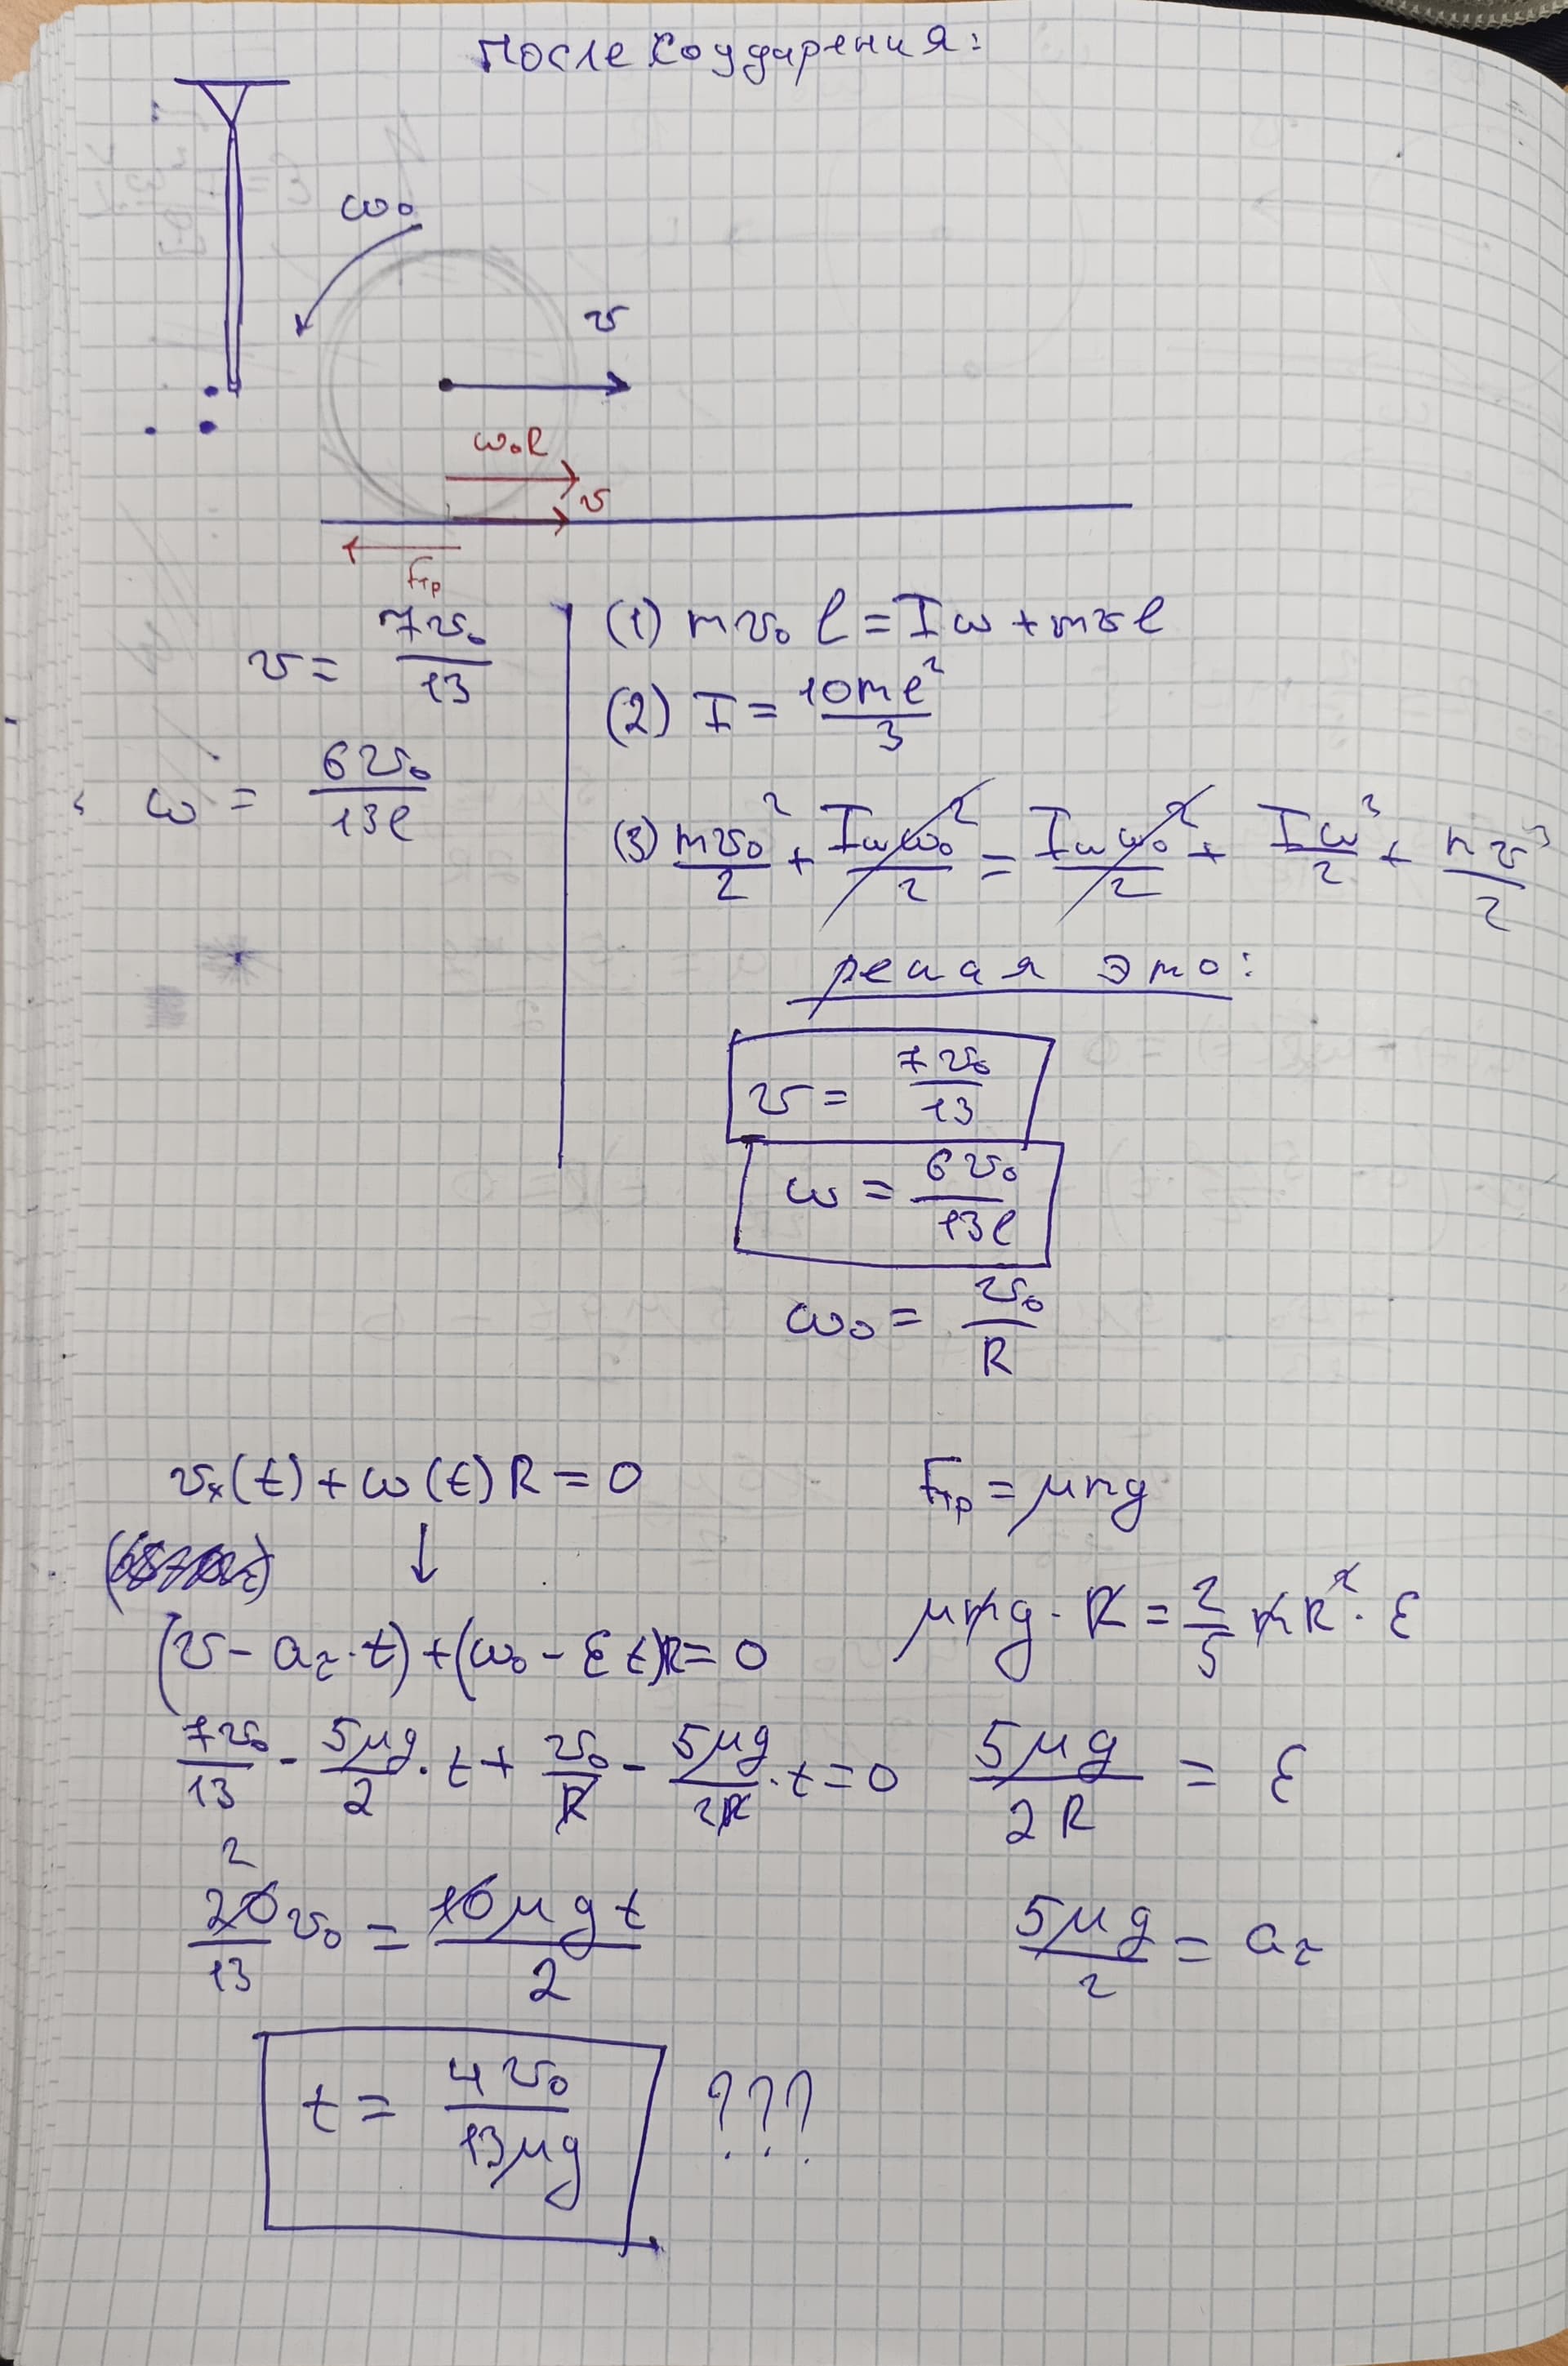 После соударения:
ω₀
v
ω₀R
v
Fтр
v = 7v₀/13
ω = 6v₀/13l
(1) mv₀l = Iω + mvl
(2) I = 10ml²/3
(3) mv₀²/2 + Iωω₀²/2 = Iωω₀²/2 + Iω²/2 + mv²/2
решая это:
v = 7v₀/13
ω = 6v₀/13l
ω₀ = v₀/R
vₓ(t) + ω(t)R = 0
Fтр = μmg
↓
μmg · R = 2/5 mR² · ε
(v - a_τ · t) + (ω₀ - εt)R = 0
7v₀/13 - 5μg/2 · t + v₀/R - 5μg/2R · t = 0
5μg/2R = ε
2
20/13 v₀ = 10μgt/2
5μg/2 = a_τ
t = 4v₀/13μg ???